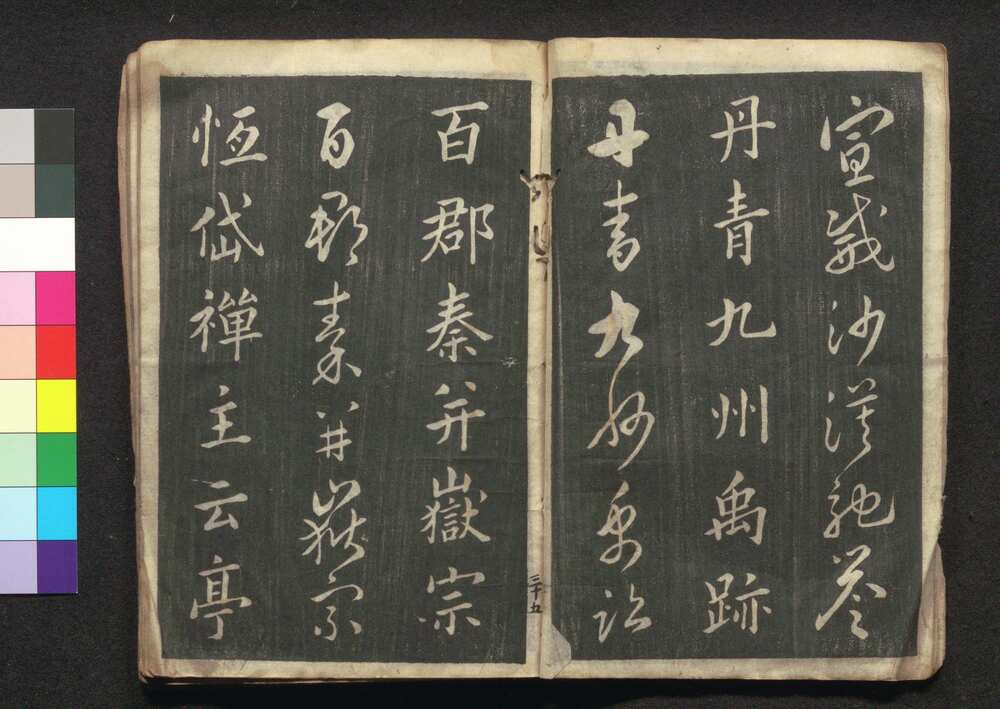 宣威沙漠馳譽
丹青九州禹跡
丹青九州禹跡
百郡秦并嶽宗
百郡秦并嶽宗
恆岱禪主云亭
三十五